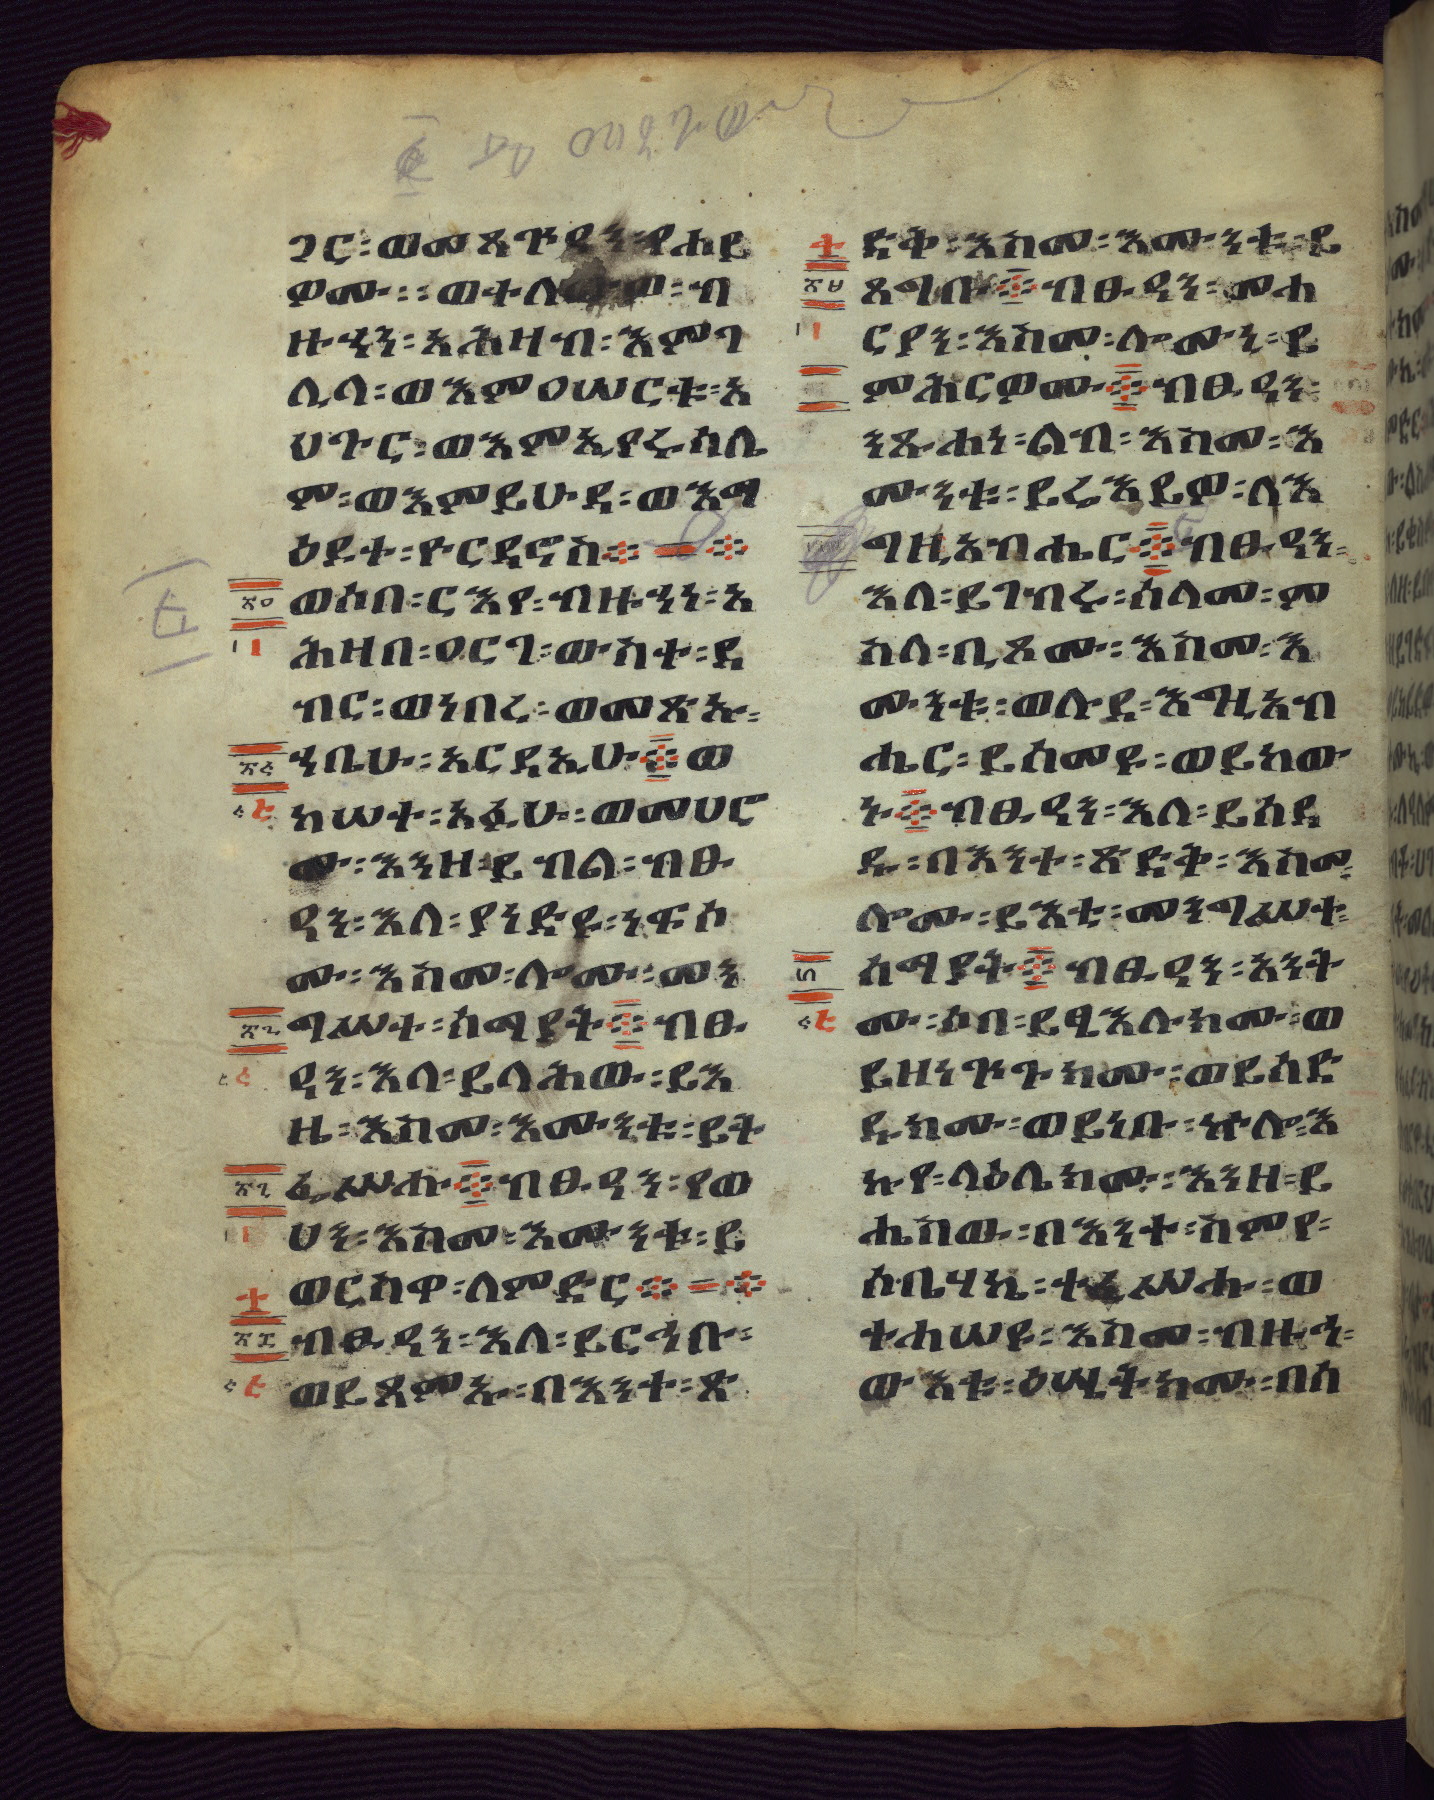 ገር፡ወመጻጕዓነ፡የሐይ
ዎሙ፡፡ወተለ ዎ፡ብ
ዙኃን፡አሕዛብ፡እምገ
ሊላ፡ወእምዐሠርቱ፡አ
ህጉር፡ወእምኢየሩሳሌ
ም፡ወእምይሁዳ፡ወእማ
ዕዶተ፡ዮርዳኖስ
፳፬
ወሶበ፡ርእየ፡ብዙኃነ፡አ
ሕዛበ፡ዐርገ፡ውስተ፡ደ
ብር፡ወነበረ፡ወመጽኡ፡
ኀቤሁ፡አርዳኢሁ፡ወ
ከሠተ፡አፉሁ፡ወመሀሮ
ሙ፡እንዘ፡ይብል፡ብፁ
ዓን፡እለ፡ያነድዩ፡ነፍሶ
ሙ፡እስመ፡ሎሙ፡መን
ግሥተ፡ሰማያት፡ብፁ
ዓን፡እለ፡ይላሕው፡ይእ
ዜ፡እስመ፡እሙንቱ፡ይት
ፌሥሑ፡ብፁዓን፡የው
ሀን፡እስመ፡እሙንቱ፡ይ
ወርስዋ፡ለምድር
ብፁዓን፡እለ፡ይርኅቡ፡
ወይጸምኡ፡በእንተ፡ጽ
ድቅ፡እስመ፡እሙንቱ፡ይ
ጸግቡ፡ብፁዓን፡መሐ
ርያን፡እስመ፡ሎሙኒ፡ይ
ምሕርዎሙ፡ብፁዓን፡
ንጹሐነ፡ልብ፡እስመ፡እ
ሙንቱ፡ይሬእይዎ፡ለእ
ግዚአብሔር፡ብፁዓን፡
እለ፡ይገብሩ፡ሰላመ፡ም
ስለ፡ቢጾሙ፡እስመ፡እ
ሙንቱ፡ውሉደ፡እግዚአብ
ሔር፡ይሰመዩ፡ወይከው
ኑ፡ብፁዓን፡እለ፡ይሰደ
ዱ፡በእንተ፡ጽድቅ፡እስመ፡
ሎሙ፡ይእቲ፡መንግሥተ፡
ሰማያት፡ብፁዓን፡አንት
ሙ፡ሶበ፡ይፂእሉክሙ፡ወ
ይዘነጕጉክሙ፡ወይሰድ
ዱክሙ፡ወይነቡ፡ኵሎ፡እ
ኩየ፡ላዕሌክሙ፡እንዘ፡ይ
ሔስው፡በእንተ፡ስምየ፡
ሶቤሃኬ፡ተፈሥሑ፡ወ
ተሐሠዩ፡እስመ፡ብዙኅ፡
ውእቱ፡ዕሤትክሙ፡በሰ